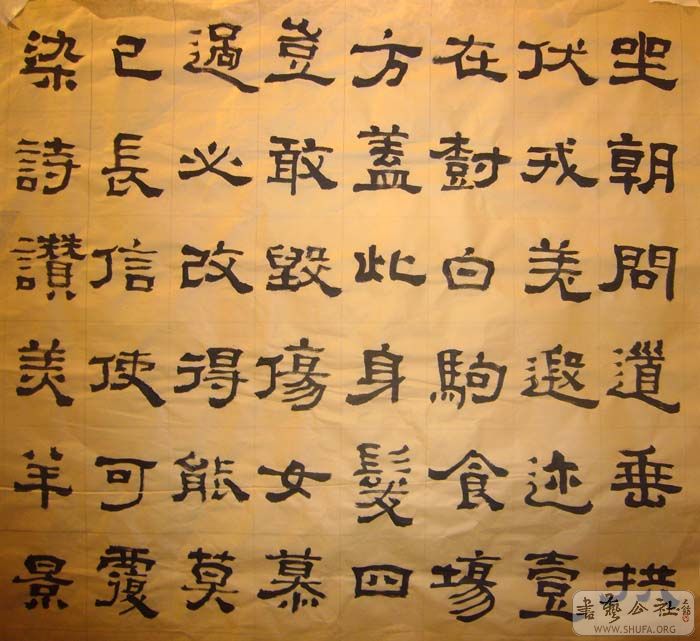 坐朝問道垂拱
伏戎羌遐迩壹
在樹白駒食場
方蓋此身髮四
豈敢毀傷女慕
過必改得能莫
已長信使可覆
染詩讚羔羊景
書藝公社
WWW.SHUFA.ORG